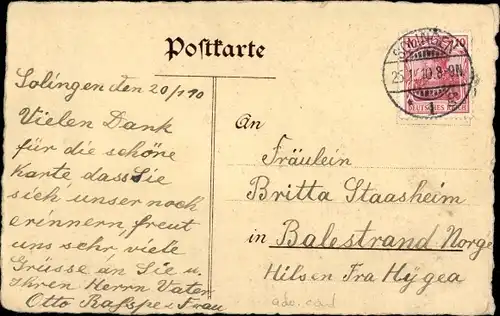 Postkarte
SOLINGEN
25.1.10.8-9N.
* 1
10
DEUTSCHES REICH
Solingen den 20/1 10
Vielen Dank
für die schöne
Karte dass Sie
sich unser noch
erinnern, freut
uns sehr, viele
Grüsse an Sie u.
Ihren Herrn Vater
Otto Raspe u Frau
An
Fräulein
Britta Staasheim
in Balestrand Norge
Hilsen Fra Hÿgea